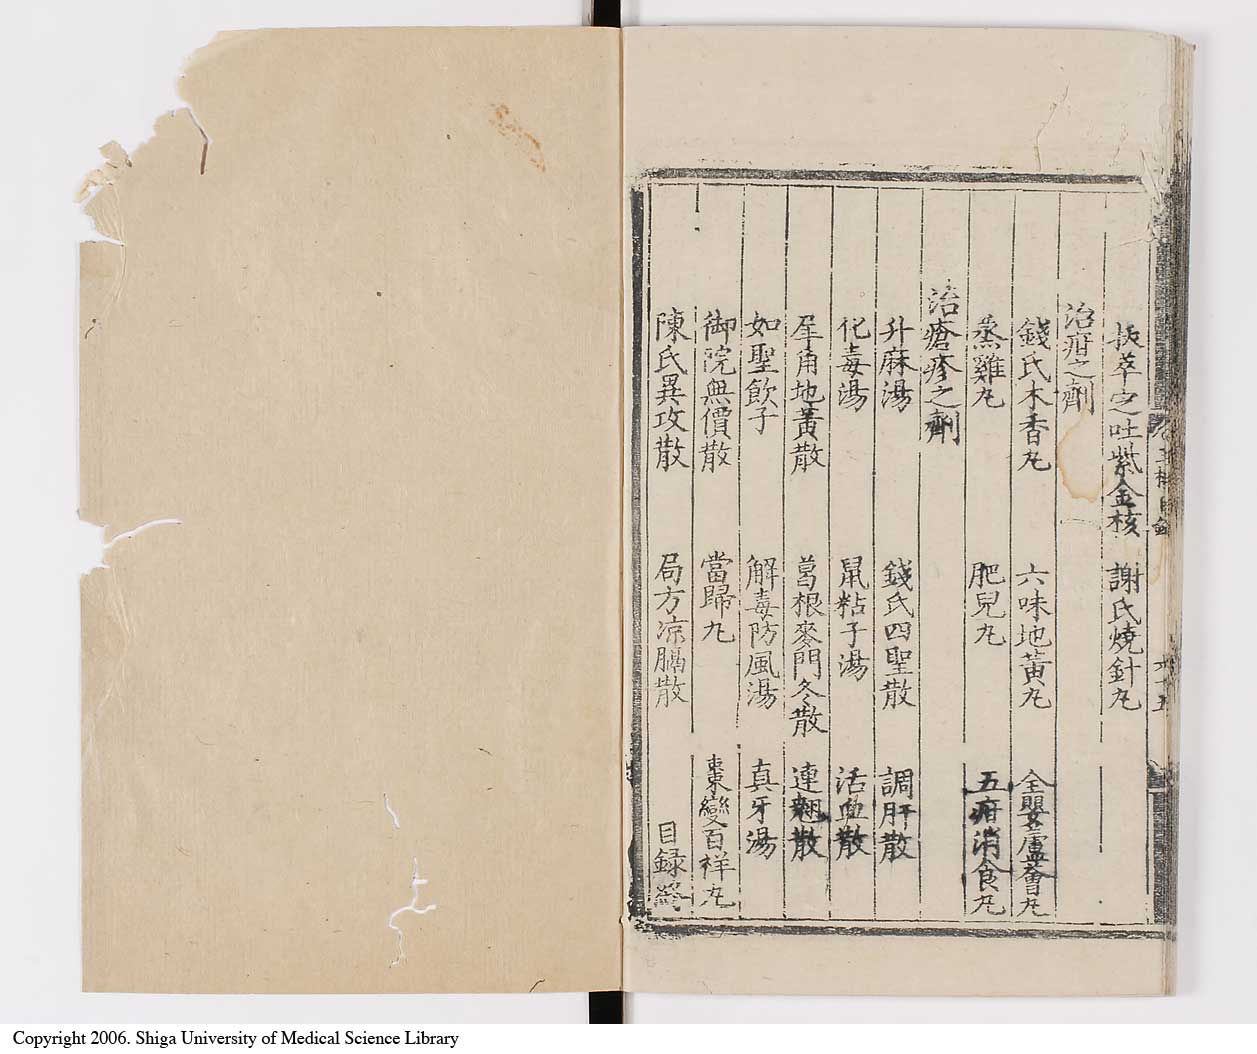 拔萃定吐紫金核 謝氏燒針丸
治疳之劑
錢氏木香丸 六味地黃丸 全嬰蘆薈丸
蒸雞丸 肥兒丸 五疳消食丸
治瘡疹之劑
升麻湯 錢氏四聖散 調肝散
化毒湯 鼠粘子湯 活血散
犀角地黃散 葛根麥門冬散 連翹散
如聖飲子 解毒防風湯 真牙湯
御院無價散 當歸丸 棗變百祥丸
陳氏異攻散 局方凉膈散 目録終
Copyright 2006. Shiga University of Medical Science Library